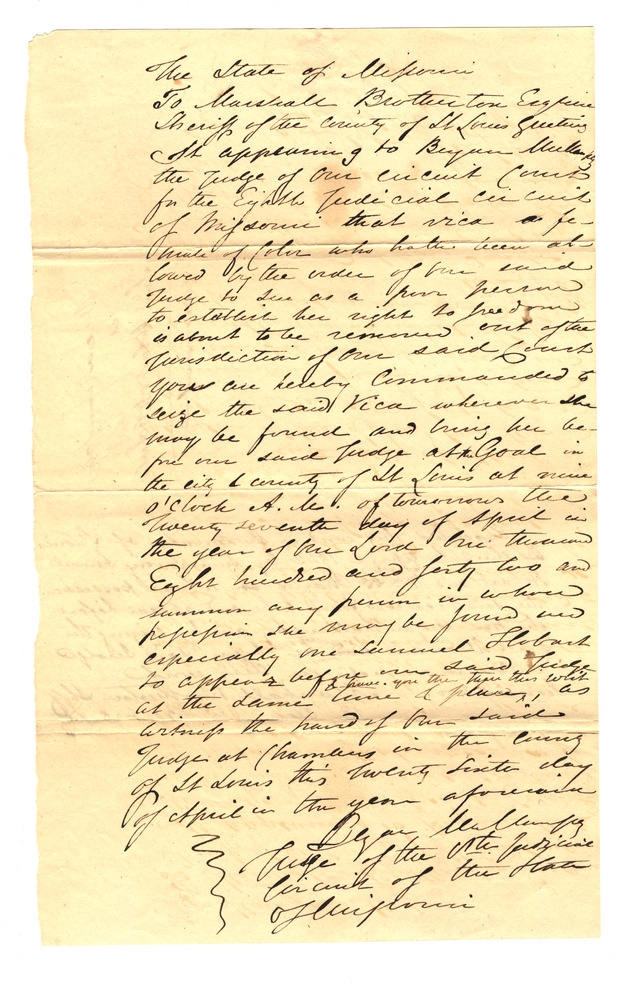 The State of Missouri
To Marshall Brotherton Esquire
Sheriff of the county of St Louis Greeting
It appearing to Bryan Mullanphy
the Judge of Our circuit Court
for the Eighth Judicial circuit
of Missouri that vica a fe-
male of Color who hath been al-
lowed by the order of Our said
Judge to sue as a poor person
to establish her right to freedom
is about to be removed out of the
Jurisdiction of Our said Court
You are hereby Commanded to
seize the said Vica wherever she
may be found and bring her be-
fore our said Judge at the Goal in
the city & county of St Louis at nine
O'Clock A. M. of tomorrow the
Twenty seventh day of April in
the year of Our Lord One thousand
Eight hundred and forty two and
summon any person in whose
possession she may be found and
especially one Samuel Hobart
to appear before our said Judge
& have you then there this writ
at the same time & place, as
witness the hand of Our said
Judge at Chambers in the County
of St Louis this twenty sixth day
of April in the year aforesaid
Bryan Mullanphy
Judge of the 8th Judicial
Circuit of the State
of Missouri